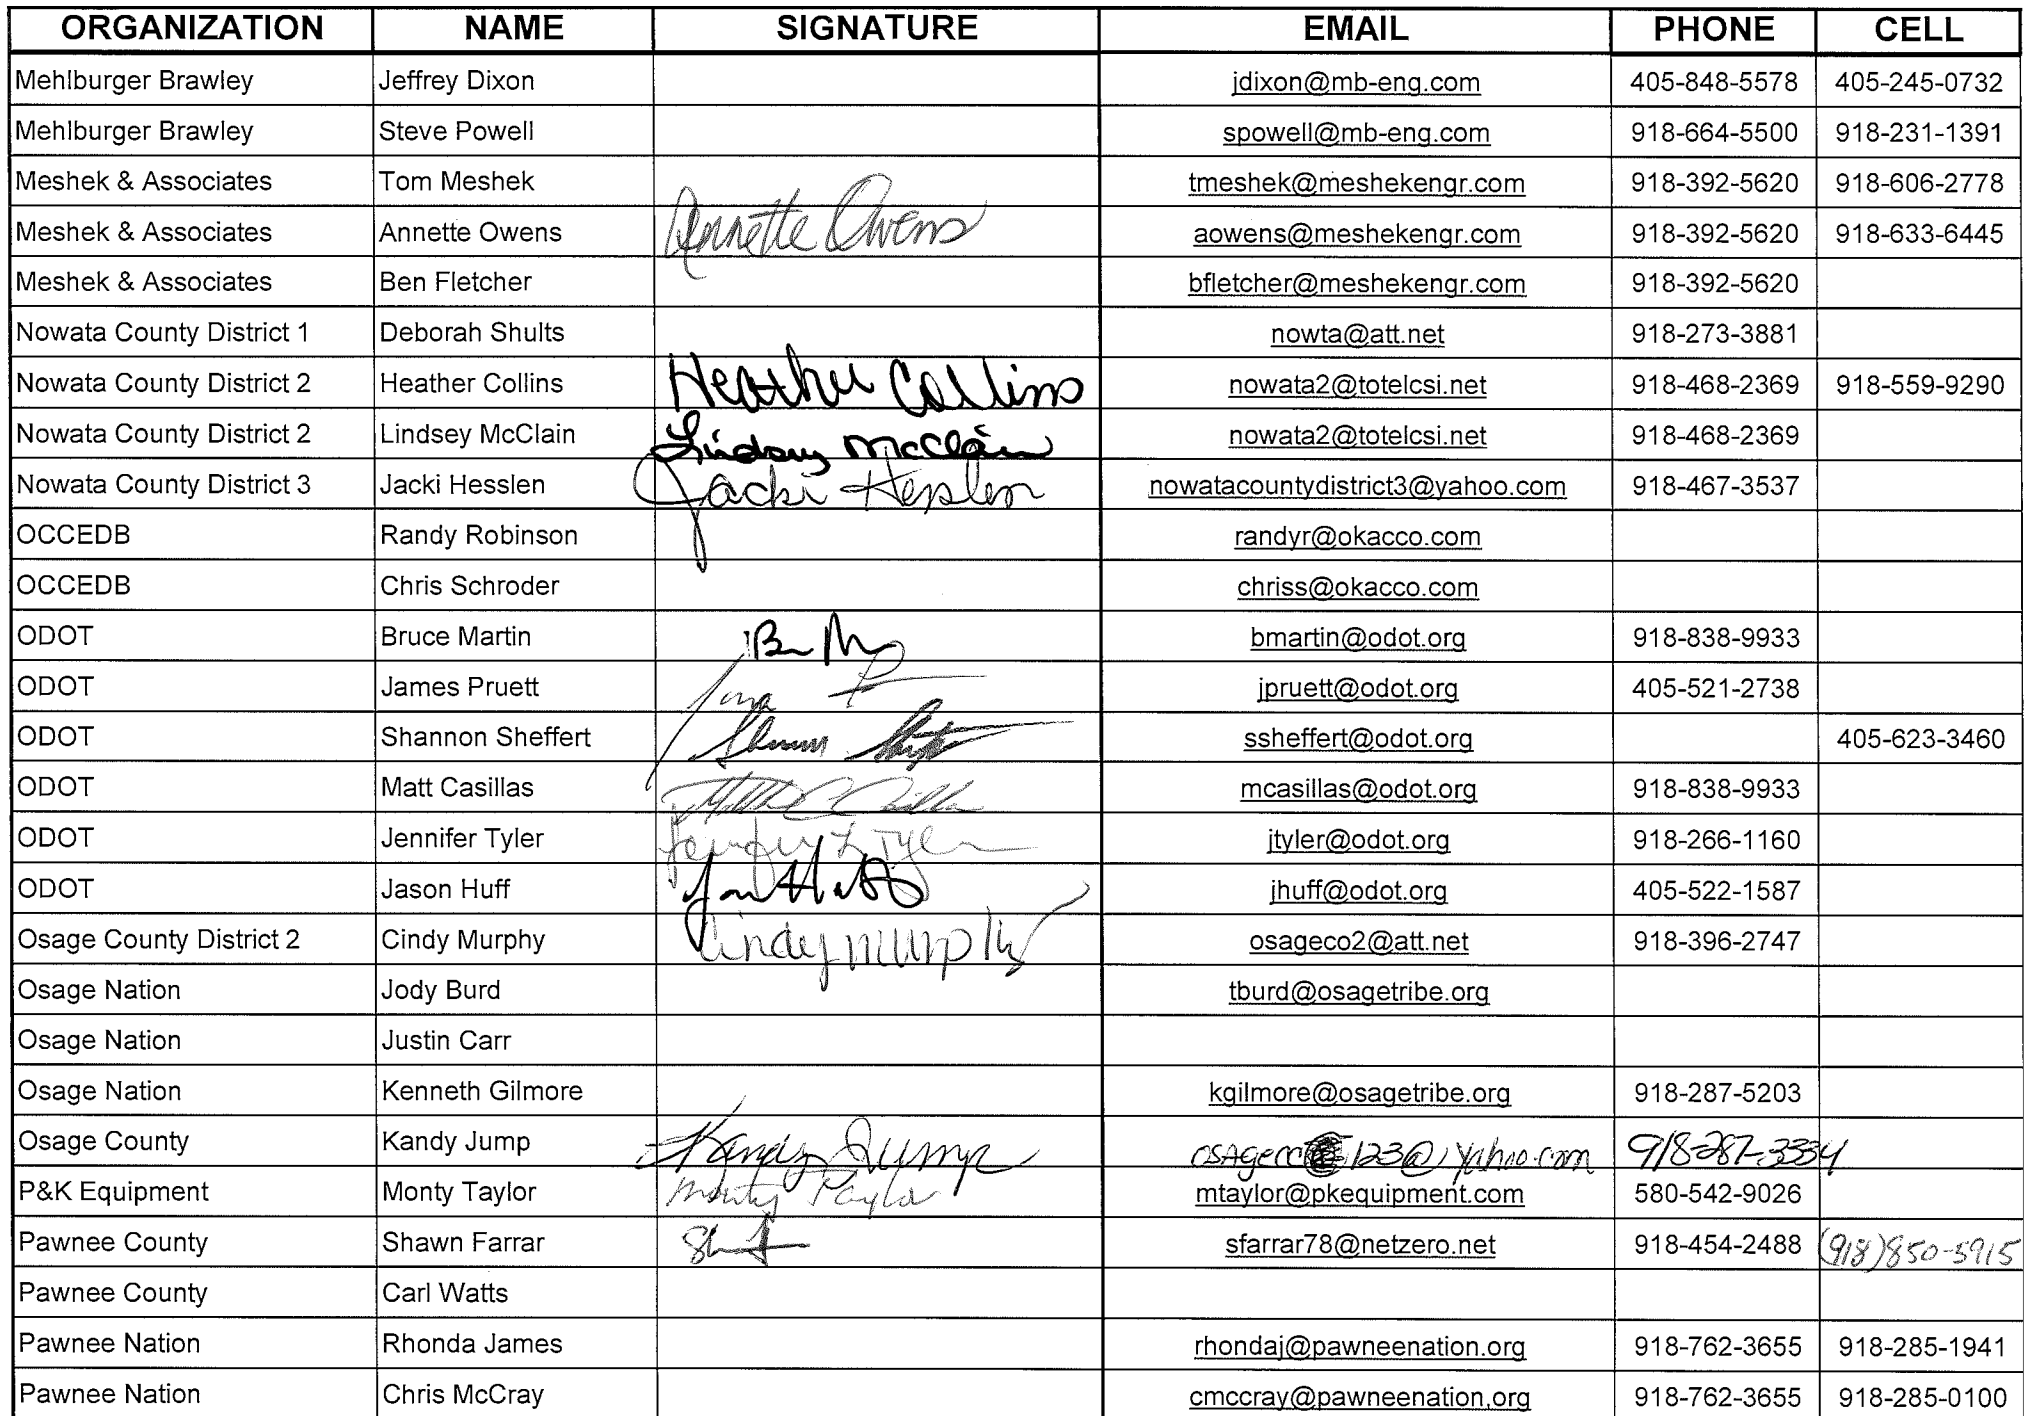 ORGANIZATION NAME SIGNATURE EMAIL PHONE CELL
Mehlburger Brawley Jeffrey Dixon jdixon@mb-eng.com 405-848-5578 405-245-0732
Mehlburger Brawley Steve Powell spowell@mb-eng.com 918-664-5500 918-231-1391
Meshek & Associates Tom Meshek tmeshek@meshekengr.com 918-392-5620 918-606-2778
Meshek & Associates Annette Owens Annette Owens aowens@meshekengr.com 918-392-5620 918-633-6445
Meshek & Associates Ben Fletcher bfletcher@meshekengr.com 918-392-5620
Nowata County District 1 Deborah Shults nowta@att.net 918-273-3881
Nowata County District 2 Heather Collins Heather Collins nowata2@totelcsi.net 918-468-2369 918-559-9290
Nowata County District 2 Lindsey McClain Lindsey McClain nowata2@totelcsi.net 918-468-2369
Nowata County District 3 Jacki Hesslen Jacki Hesslen nowatacountydistrict3@yahoo.com 918-467-3537
OCCEDB Randy Robinson randyr@okacco.com
OCCEDB Chris Schroder chriss@okacco.com
ODOT Bruce Martin bmartin@odot.org 918-838-9933
ODOT James Pruett jpruett@odot.org 405-521-2738
ODOT Shannon Sheffert ssheffert@odot.org 405-623-3460
ODOT Matt Casillas mcasillas@odot.org 918-838-9933
ODOT Jennifer Tyler Jennifer L Tyler jtyler@odot.org 918-266-1160
ODOT Jason Huff jhuff@odot.org 405-522-1587
Osage County District 2 Cindy Murphy Cindy Murphy osageco2@att.net 918-396-2747
Osage Nation Jody Burd tburd@osagetribe.org
Osage Nation Justin Carr
Osage Nation Kenneth Gilmore kgilmore@osagetribe.org 918-287-5203
Osage County Kandy Jump Kandy Jump 123@yahoo.com 918-287-3334
P&K Equipment Monty Taylor Monty Taylor mtaylor@pkequipment.com 580-542-9026
Pawnee County Shawn Farrar sfarrar78@netzero.net 918-454-2488 (918)850-5915
Pawnee County Carl Watts
Pawnee Nation Rhonda James rhondaj@pawneenation.org 918-762-3655 918-285-1941
Pawnee Nation Chris McCray cmccray@pawneenation.org 918-762-3655 918-285-0100